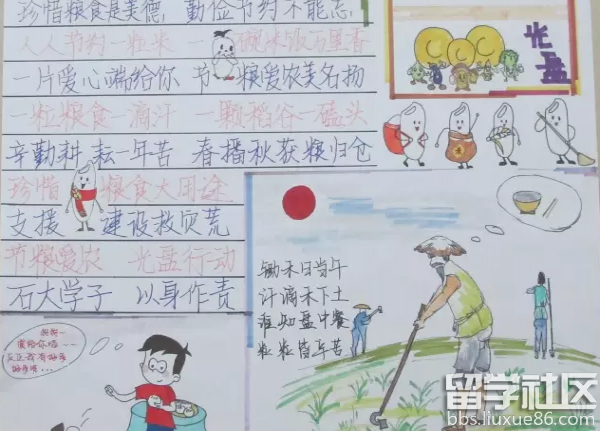 珍惜粮食是美德 勤俭节约不能忘
人人节约一粒米 一碗米饭万里香
一片爱心端给你 节粮爱农美名扬
一粒粮食一滴汗 一颗稻谷一磕头
辛勤耕耘一年苦 春播秋获粮归仓
珍惜粮食大用途
支援 建设救灾荒
节粮爱农 光盘行动
石大学子 以身作责
光盘
锄禾日当午
汗滴禾下土
谁知盘中餐
粒粒皆辛苦
留学社区
bbs.liuxue86.com